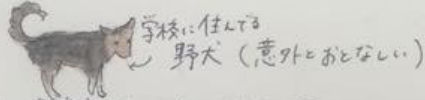 学校に住んでる
野犬(意外とおとなしい)